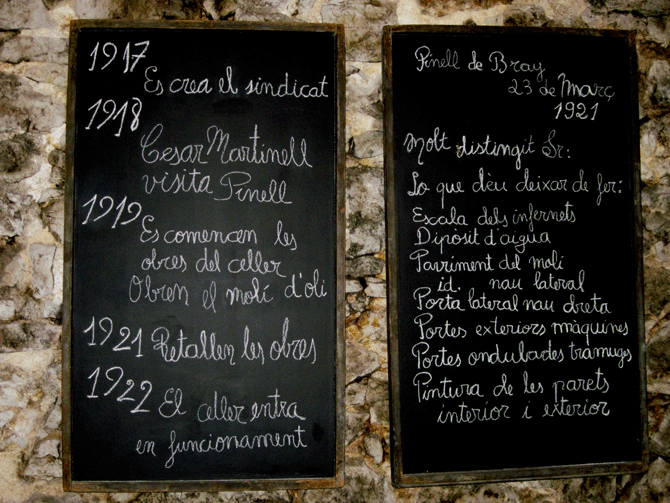 1917
Es crea el sindicat
1918
Cesar Martinell
visita Pinell
1919
Es comencen les
obres del celler
Obren el molí d'oli
1921 Retallen les obres
1922 El celler entra
en funcionament
Pinell de Bray
23 de Març
1921
Molt distingit Sr:
Lo que dèu deixar de fer:
Escala dels infernets
Dipòsit d'aigua
Pavriment del molí
id. nau lateral
Porta lateral nau dreta
Portes exteriors màquines
Portes ondulades tramuges
Pintura de les parets
interior i exterior